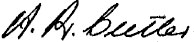 A. A. Butler